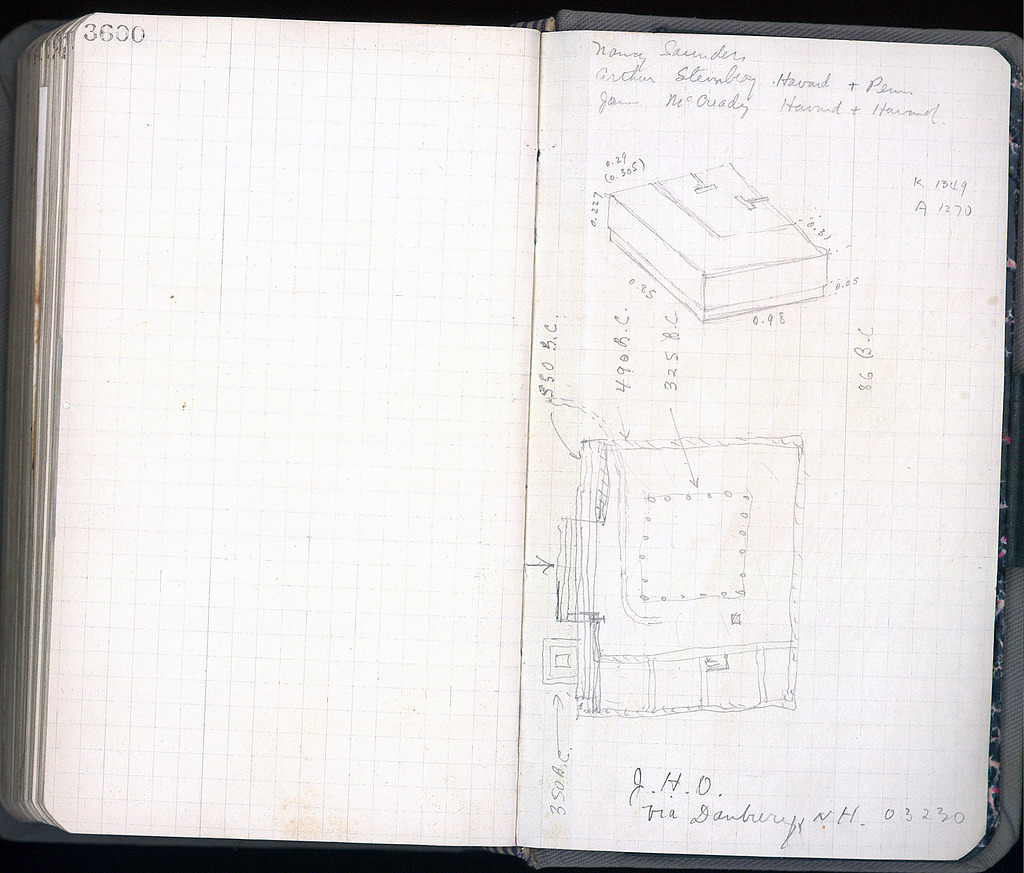 3600
Nancy Saunders
Arthur Steinberg Havard + Penn
James McCready Havard + Havard.
0.29
(0.305)
K 1349
A 1270
0.227
0.31
0.85
0.05
0.98
550 B.C.
490 B.C.
325 B.C.
86 B.C
350 B.C.
J.H.O.
via Danbury, N.H. 03230